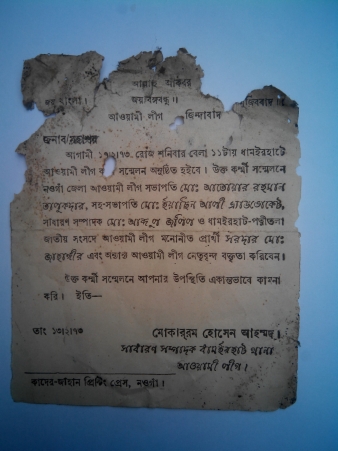 আল্লাহু আকবর
জয় বাংলা। জয়বঙ্গবন্ধু। মুজিববাদ
আওয়ামী লীগ জিন্দাবাদ
জনাব/
আগামী ১৭/২/৭৩ রোজ শনিবার বেলা ১১টায় ধামইরহাটে
আওয়ামী লীগ কর্মী সম্মেলন অনুষ্ঠিত হইবে। উক্ত কর্মী সম্মেলনে
নওগাঁ জেলা আওয়ামী লীগ সভাপতি মোঃ আতোয়ার রহমান
তালুকদার, সহ-সভাপতি মোঃ ইয়াছিন আলী এ্যাডভোকেট,
সাধারণ সম্পাদক মোঃ আব্দুল জলিল ও ধামইরহাট-পত্নীতলা
জাতীয় সংসদে আওয়ামী লীগ মনোনীত প্রার্থী সরদার মোঃ
জাহাঙ্গীর এবং অন্যান্য আওয়ামী লীগ নেতৃবৃন্দ বক্তৃতা করিবেন।
উক্ত কর্মী সম্মেলনে আপনার উপস্থিতি একান্তভাবে কামনা
করি। ইতি—
তাং ১৩/২/৭৩
মোকাররম হোসেন আহম্মদ।
সাধারণ সম্পাদক ধামইরহাট থানা
আওয়ামী লীগ।
কাদের-জাহান প্রিন্টিং প্রেস, নওগাঁ।